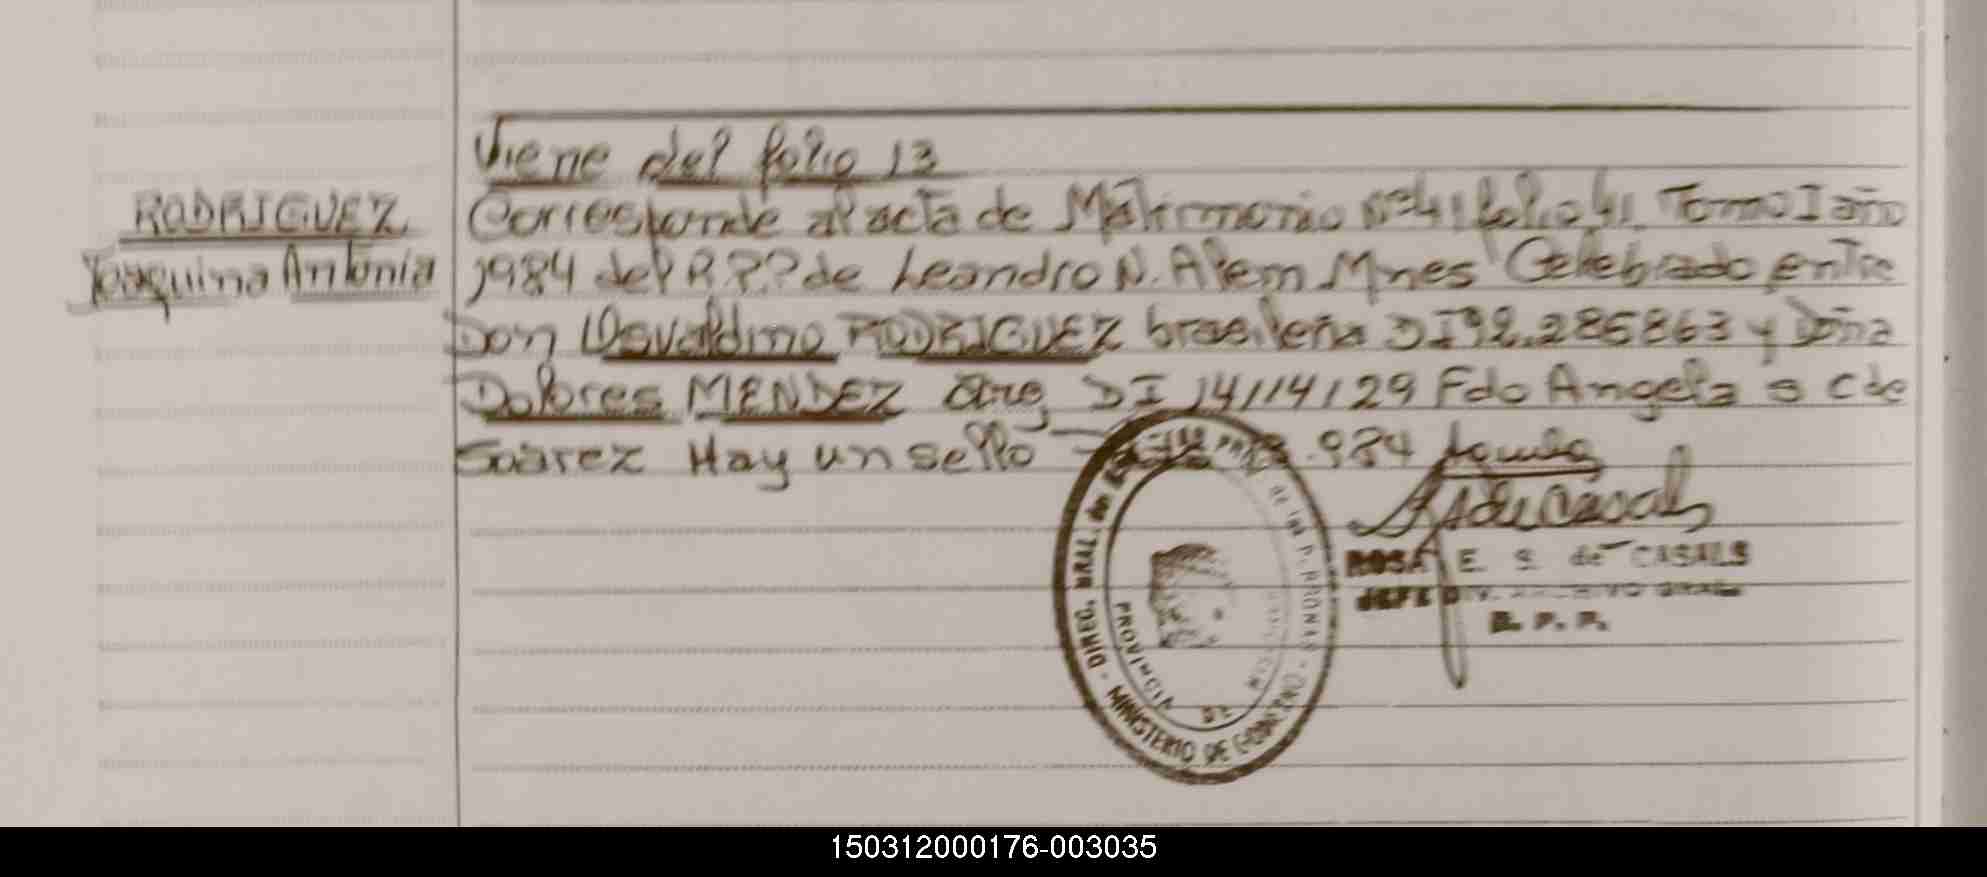 Viene del folio 13
RODRIGUEZ
Joaquina Antonia
Corresponde al acta de Matrimonio Nº41 folio 41 Tomo I año
1984 del R.P.P de Leandro N. Alem Mnes Celebrado entre
Don Osvaldino RODRIGUEZ brasileña DI 92.285863 y Doña
Dolores MENDEZ Arg DI 14114129 Fdo Angela S C de
Suarez Hay un sello
984
ROSA E. S. de CASALS
JEFE DIV. ARCHIVO GRAL
R. P. P.
DIREC. GRAL. de las P.
MINISTERIO DE GOBIERNO
PROVINCIA DE
150312000176-003035